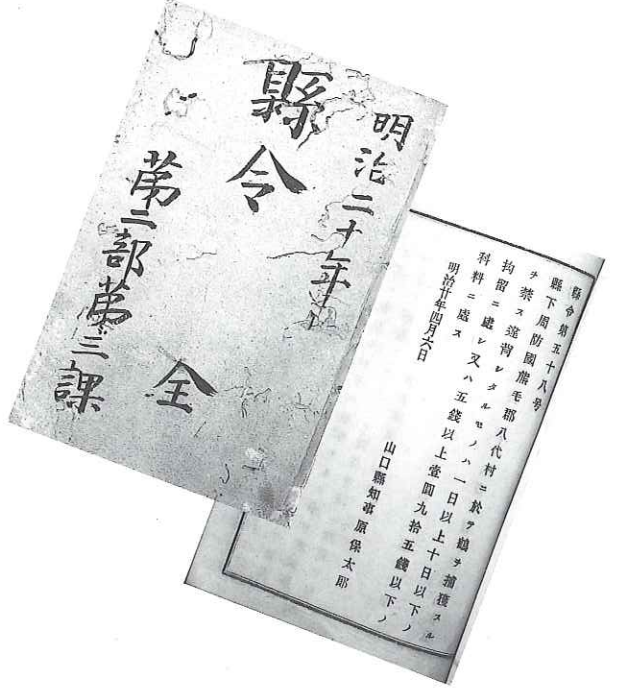 明治二十年
縣令
全
第二部第三課
縣令第五十八号
縣下周防國熊毛郡八代村ニ於テ鶴ヲ捕獲スル
ヲ禁ス違背シタルモノハ一日以上十日以下ノ
拘留ニ處シ又ハ五錢以上壹圓九拾五錢以下ノ
科料ニ處ス
明治廿年四月六日
山口縣知事原保太郎